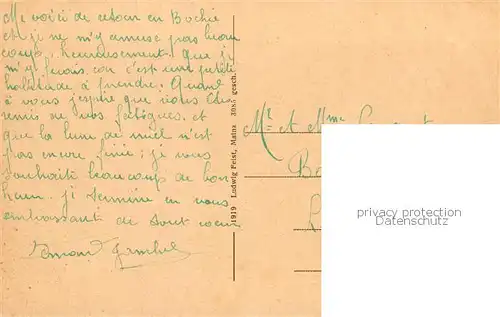 Me voici de retour en Bochie
et je ne m'y amuse pas beau
coup, heureusement que je
m'y ferais car c'est une petite
habitude à prendre. Quant
à vous j'espère que vous êtes
remis de vos fatigues et
que la lune de miel n'est
pas encore finie; je vous
souhaite beaucoup de bon
heur. je termine en vous
embrassant de tout coeur
1919 Ludwig Feist, Mainz 3985 gesch.
Mr A Mme
privacy protection watermark